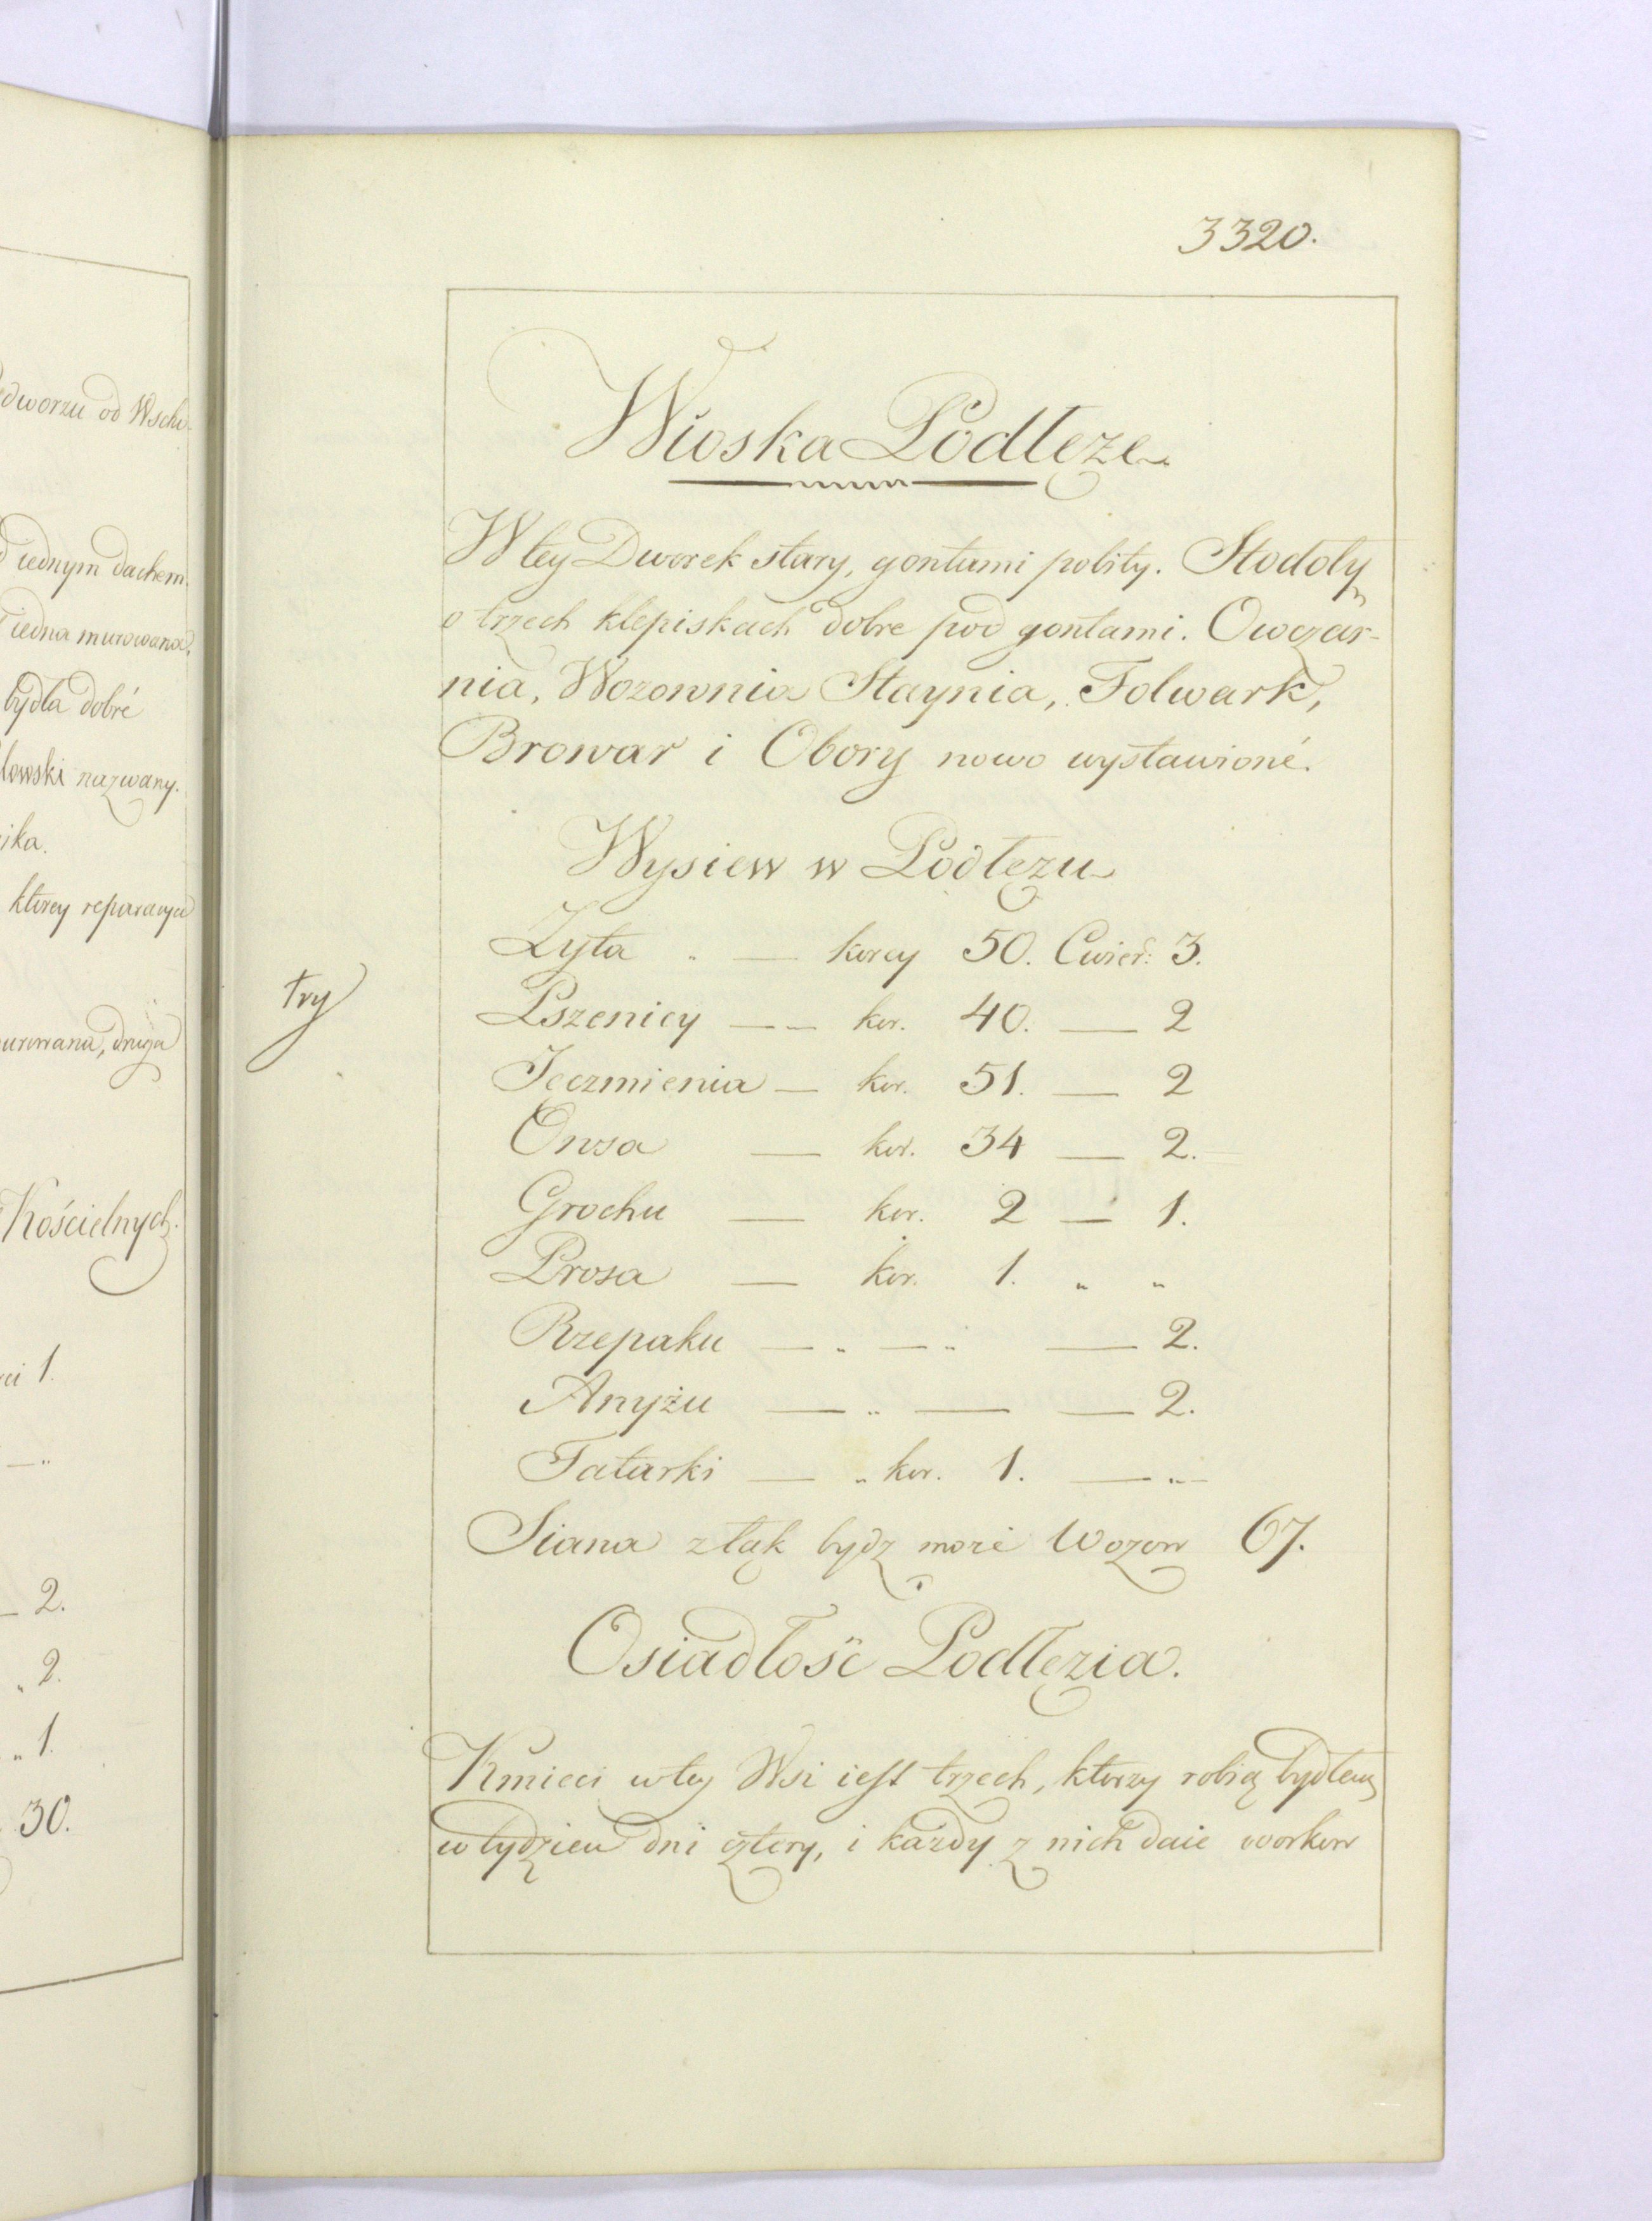 dworzu od Wscho-
iednym dachem.
iedna murowana,
bydła dobré
nazwany.
ika.
ktorey reparacya
druga
Kościelnych.
1.
2.
2.
1.
30.
3320.
Wioska Podłęże
W tey Dworek stary, gontami pobity. Stodoły
o trzech klepiskach dobre pod gontami. Owczar-
nia, Wozownia Staynia, Folwark,
Browar i Obory nowo wystawioné.
Wysiew w Podłężu
Zyta „ — korcy 50. Cwierć: 3.
try
Pszenicy — — kor. 40. — 2
Jeczmienia — kor. 51. — 2
Owsa — kor. 34 — 2.
Grochu — kor. 2 — 1.
Prosa — kor. 1. „ „
Rzepaku — „ — „ — 2.
Anyżu — „ — — 2.
Tatarki — „ kor. 1. — „ —
Siana z łąk bydz może Wozow 67.
Osiadłość Podłęzia.
Kmieci w tey Wsi iest trzech, ktorzy robią bydłem
w tydzien dni cztery, i każdy z nich daie workow